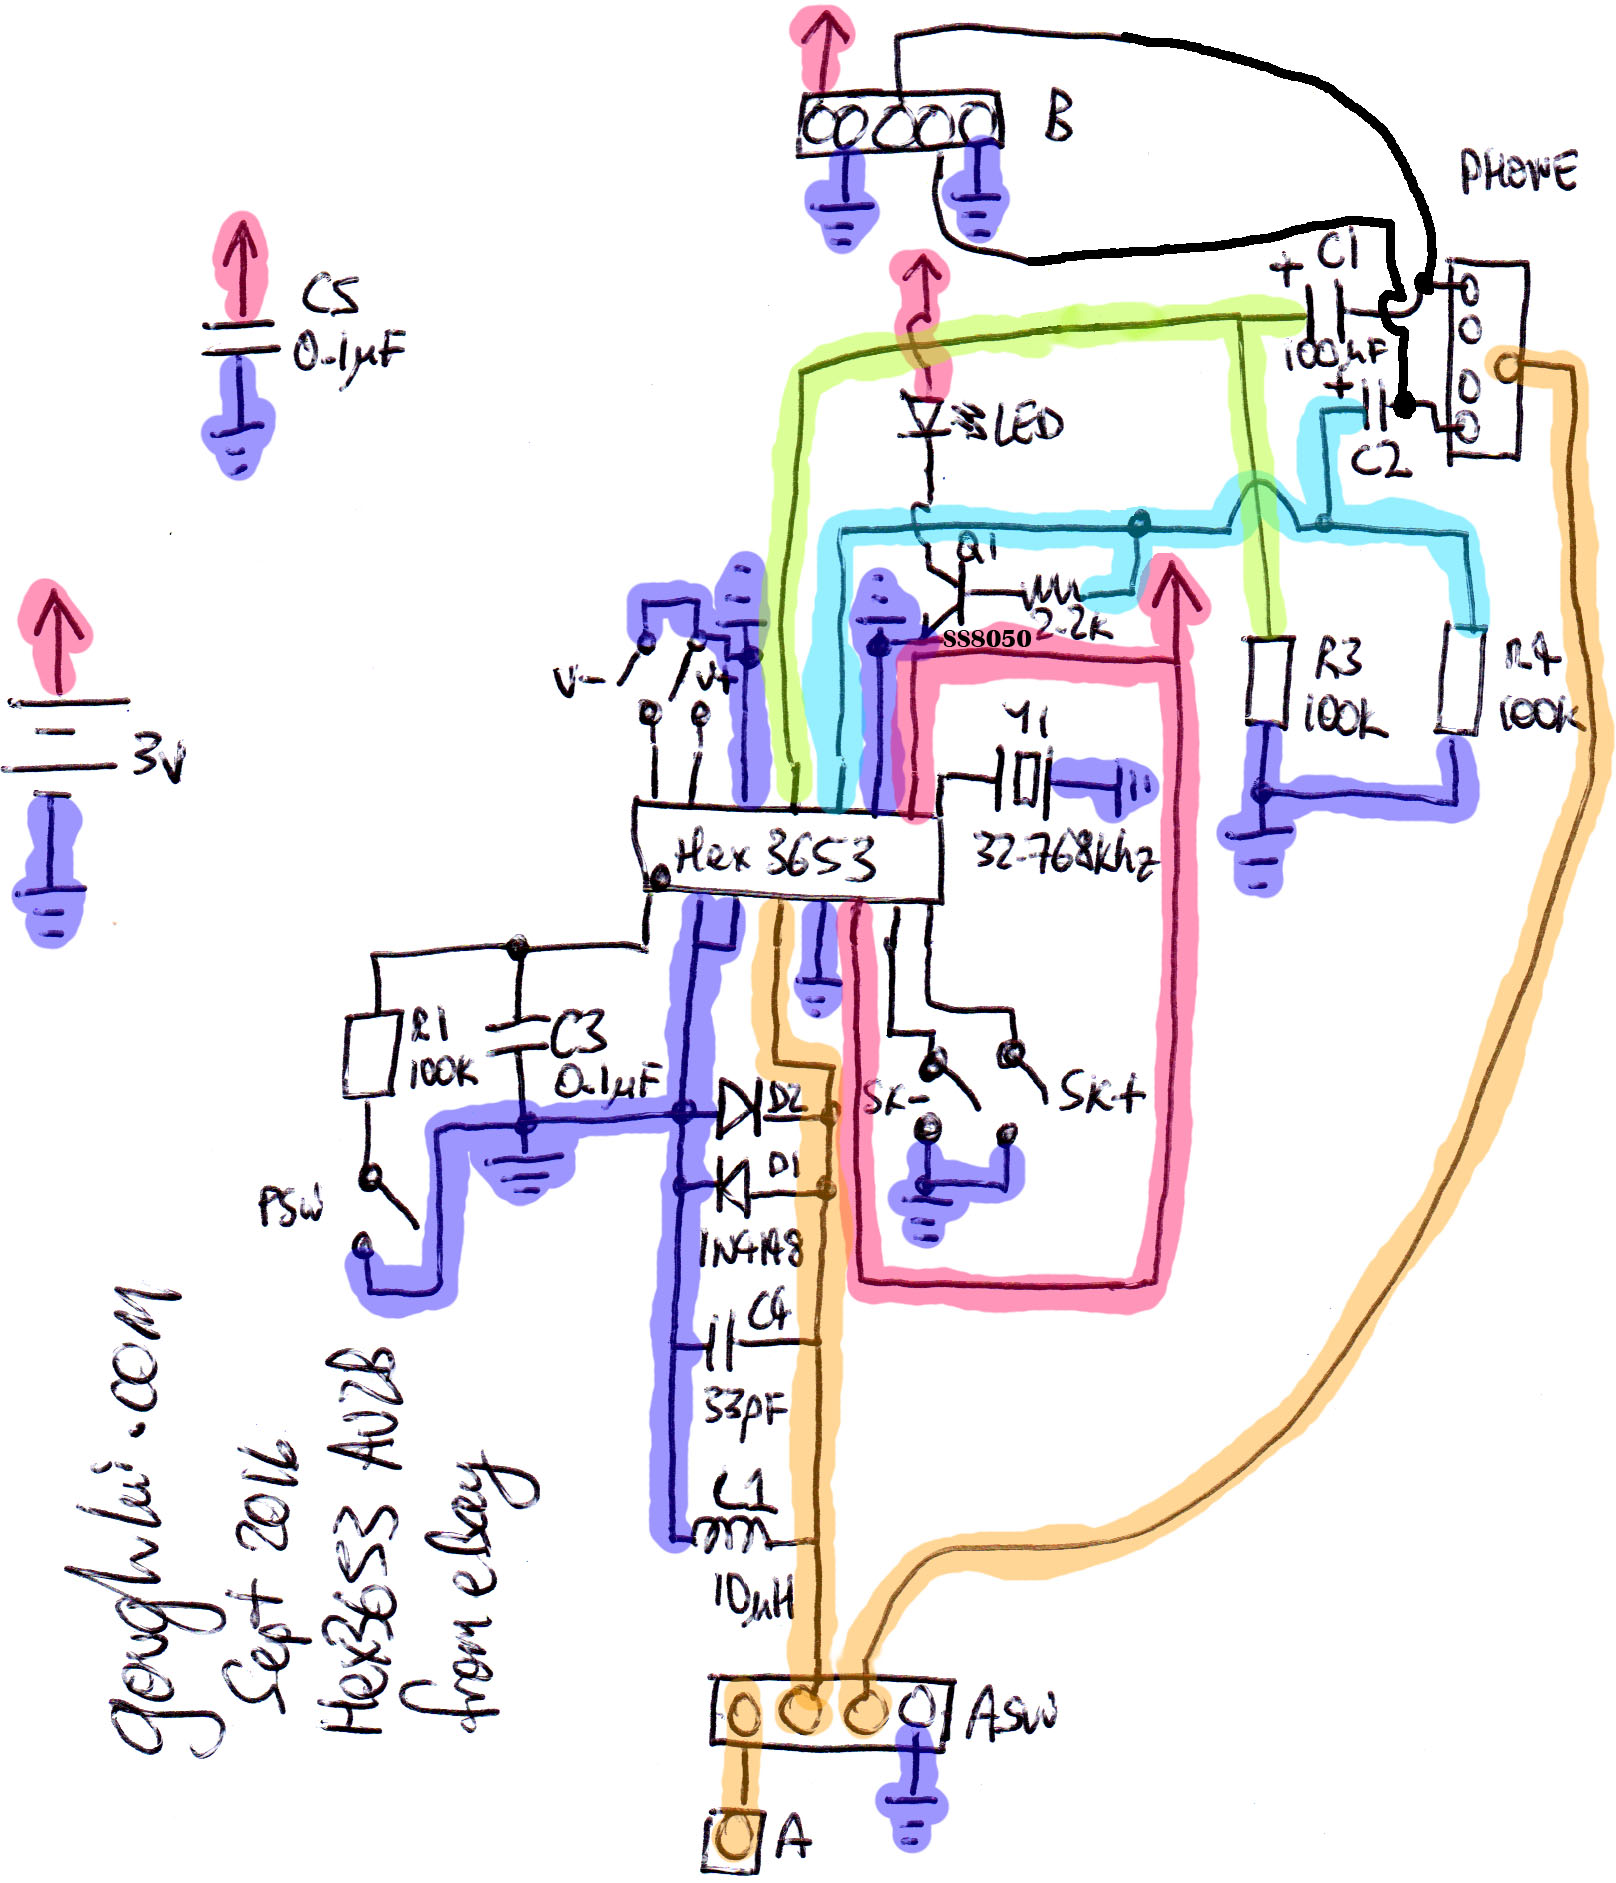 B
PHONE
+ C1
100µF
C5
0.1µF
LED
+
C2
Q1
2.2K
SS8050
V-
V+
R3
100K
R4
100K
3V
Y1
32.768Khz
Hex 3653
R1
100K
C3
0.1µF
D2
SK-
SK+
D1
PSW
1N4148
C4
33pF
L1
10µH
ASW
A
goughlui.com
Sept 2016
Hex3653 AV2B
from eBay